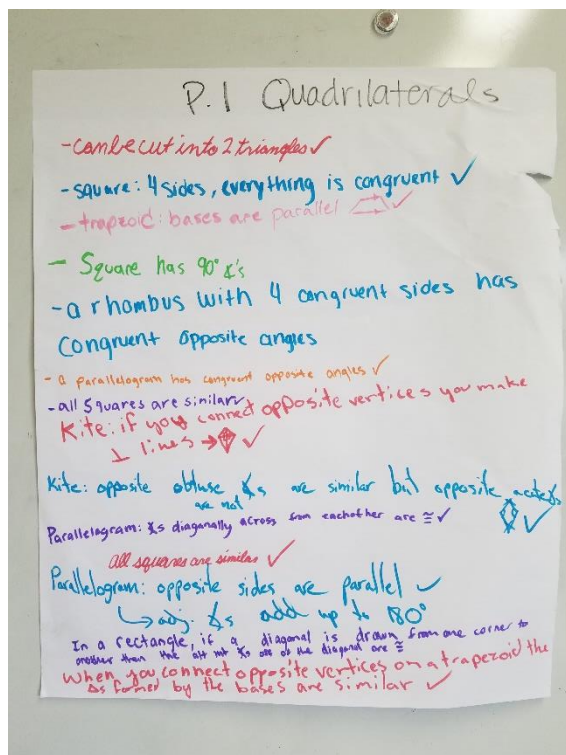 P.1 Quadrilaterals
- can be cut into 2 triangles ✓
- square: 4 sides, everything is congruent ✓
- trapezoid: bases are parallel ✓
- Square has 90° ∡'s
- a rhombus with 4 congruent sides has
congruent opposite angles
- a parallelogram has congruent opposite angles ✓
- all squares are similar ✓
Kite: if you connect opposite vertices you make
⊥ lines → ✓
Kite: opposite obtuse ∡s are similar but opposite acute ∡s
are not ✓
Parallelogram: ∡s diagonally across from eachother are ≅ ✓
All squares are similar ✓
Parallelogram: opposite sides are parallel ✓
↳ adj. ∡s add up to 180°
In a rectangle, if a diagonal is drawn from one corner to
another than the alt int ∡s of the diagonal are ≅
When you connect opposite vertices on a trapezoid the
∆s formed by the bases are similar ✓